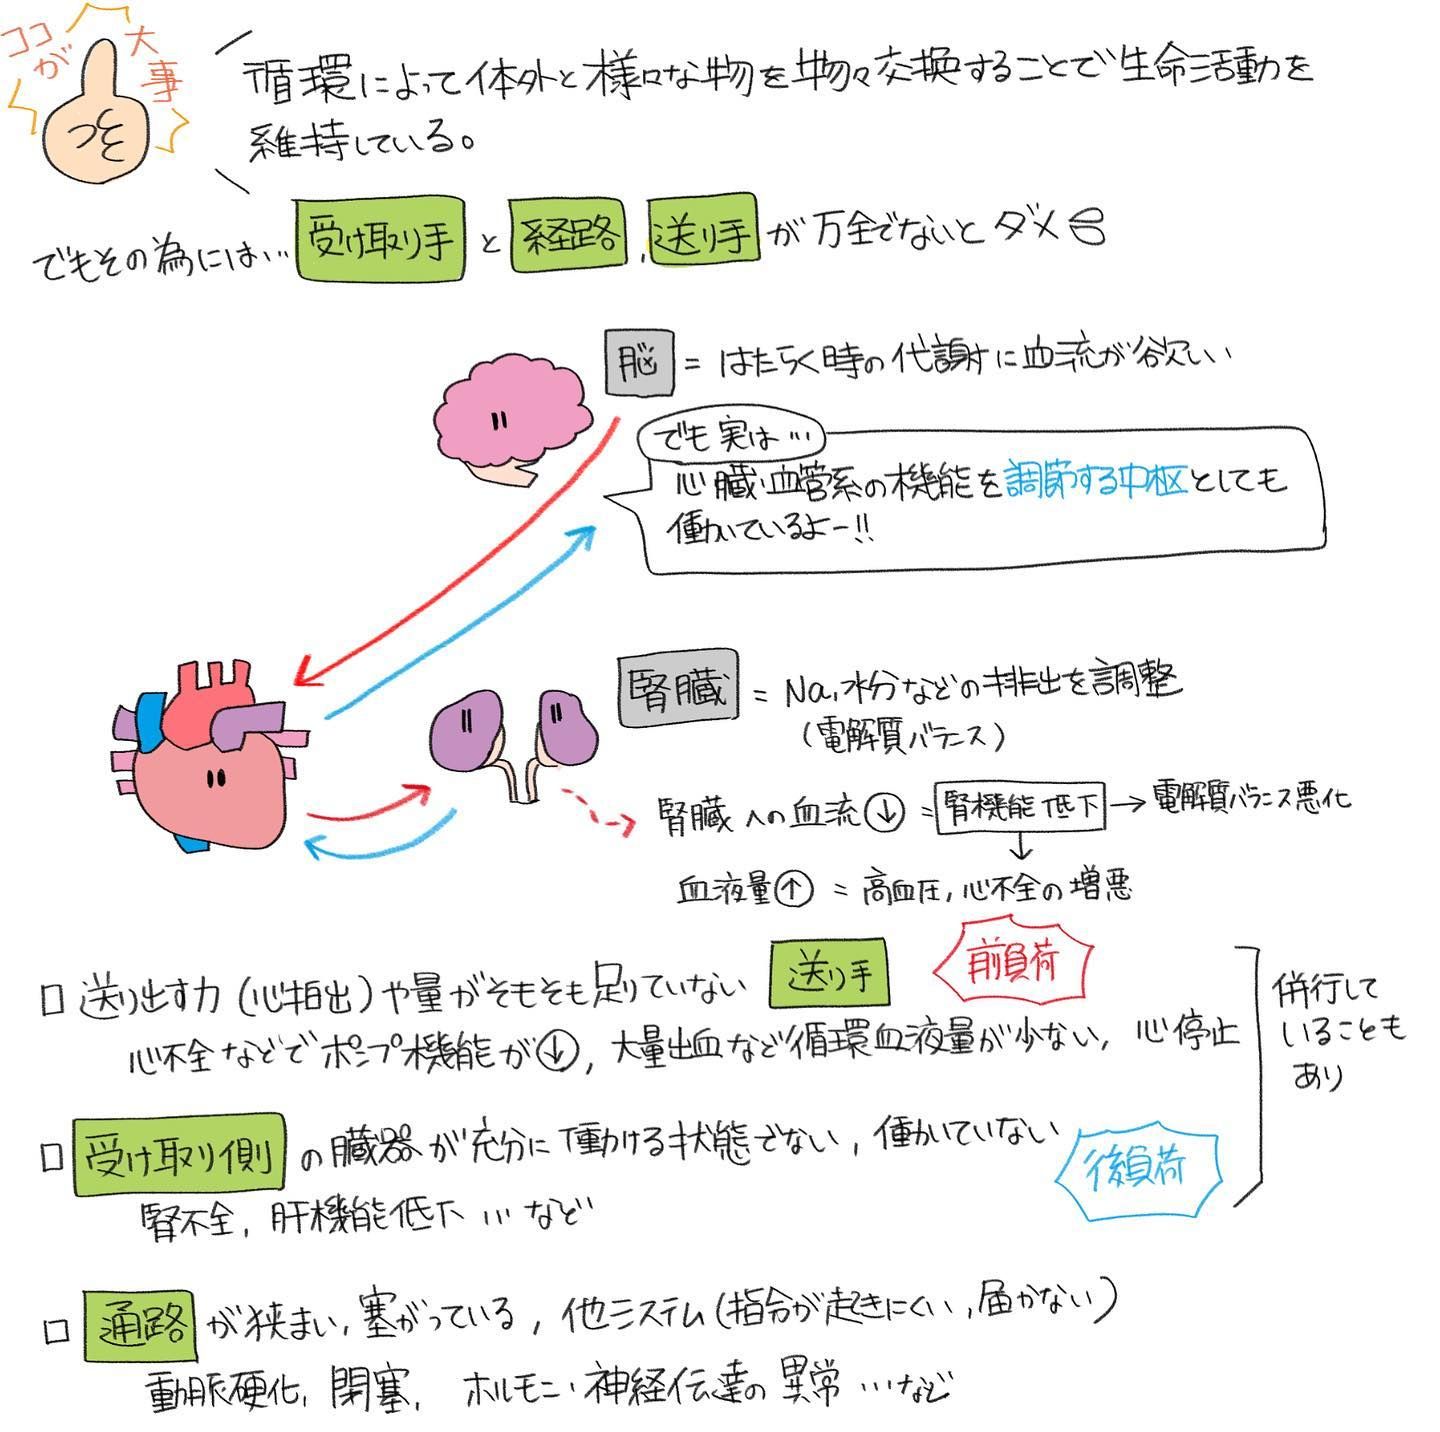 ココが大事
循環によって体外と様々な物を物々交換することで生命活動を
維持している。
でもその為には… 受け取り手 と 経路、送り手 が万全でないとダメ
脳 = はたらく時の代謝に血流が欲しい
でも実は…
心臓・血管系の機能を調節する中枢としても
働いているよー!!
腎臓 = Na、水分などの排出を調整
(電解質バランス)
腎臓への血流↓ = 腎機能低下 → 電解質バランス悪化
↓
血液量↑ = 高血圧、心不全の増悪
□ 送り出す力(心拍出)や量がそもそも足りていない 送り手 前負荷
心不全などでポンプ機能が↓、大量出血など循環血液量が少ない、心停止
併行して
いることも
あり
□ 受け取り側 の臓器が充分に働ける状態でない、働いていない 後負荷
腎不全、肝機能低下…など
□ 通路 が狭まい、塞がっている、他システム(指令が起きにくい、届かない)
動脈硬化、閉塞、ホルモン・神経伝達の異常…など